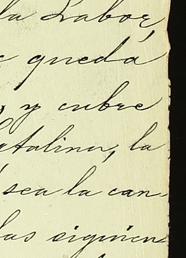 la Labor,
quedá
, y cubre
atalina, la
sea la can
las siguien